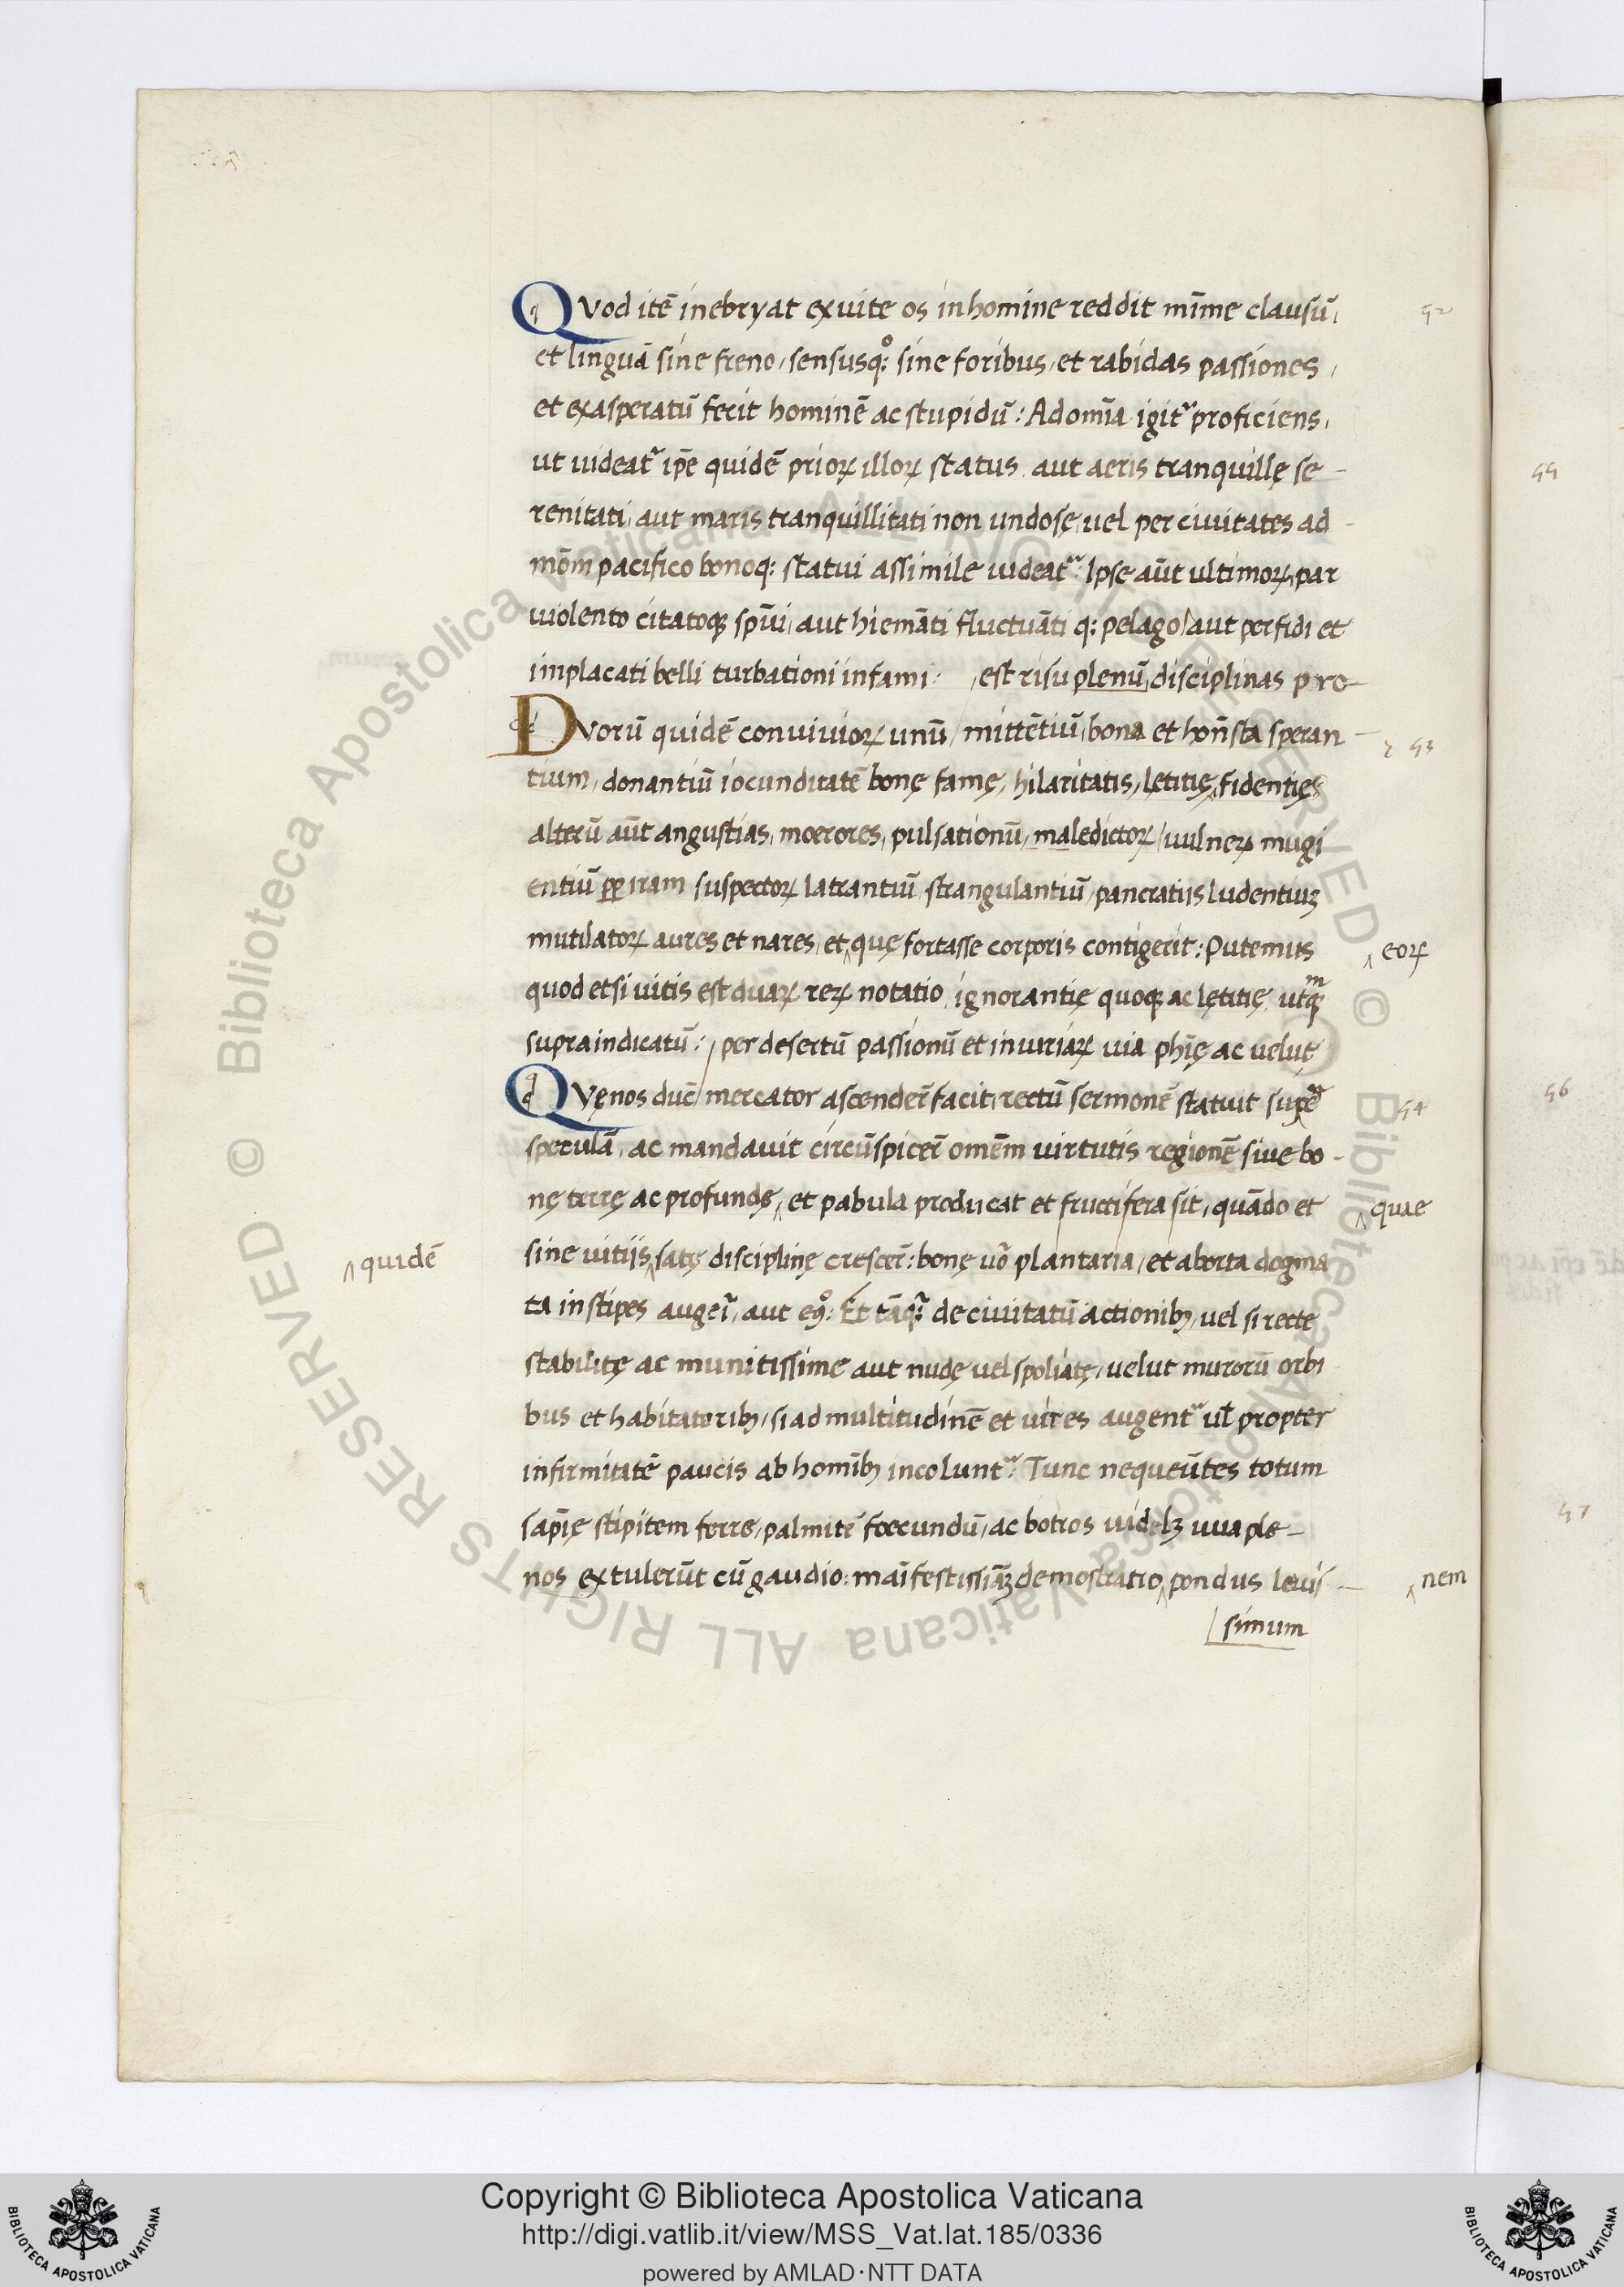 Qvod itē inebryat ex uite os in homine reddit mīme clausū,
et linguā sine freno, sensusq; sine foribus, et rabidas passiones,
et exasperatū ferit hominē ac stupidū: Ad omīa igit᷑ proficiens,
ut uideat᷑ ip̄e quidē prioꝝ illoꝝ status aut aeris tranquillę se-
renitati, aut maris tranquillitati non undosę, uel per ciuitates ad-
mōm pacifico bonoq; statui assimile uideat᷑: Ipse aūt ultimoꝝ, par
uiolento citatoq; sp̄ui, aut hiemāti fluctuāti q; pelago, aut perfidi et
implacati belli turbationi infami: est risu plenū, disciplinas pro-
Dvorū quidē conuiuioꝝ unū / mittētiū, bona et hon̄sta speran-
tium, donantiū iocunditatē bonę famę, hilaritatis, lętitię, fidentię
alterū aūt angustias, moerores, pulsationū, maledictoꝝ, uulneꝝ mugi
entiū ꝑ iram suspectoꝝ latrantiū strangulantiū, pancratijs ludentiuꝫ
mutilatoꝝ aures et nares, et ‸ quę fortasse corporis contigerit: Putemus
‸ eoꝝ
quod etsi uitis est duaꝝ reꝝ notatio, ignorantię quoq; ac lętitię, utq;m
supra indicatū: / per desertū passionū et iniuriaꝝ uia ph̄ię ac velut
Qvę nos duc̄ / mercator ascender̄ facit, rectū sermonē statuit
sperulā, ac mandauit circūspicer̄ omēm virtutis regionē siue bo-
nę terrę ac profundę, ‸ et pabula producat et fructifera sit, quādo et
‸ quae
sine uitijs ‸ satę disciplinę crescer̄: bonę uō plantaria, et aborta dogma
‸ quidē
ta in stipes auger̄, aut Et de ciuitatū actionibꝫ, vel si recte
stabilitę ac munitissime aut nudę vel spoliatę, velut murorū orbi
bus et habitatoribꝫ, si ad multitudinē et uires augent᷑ ul̄ propter
infirmitatē paucis ab homībꝫ incolunt᷑: Tunc nequeūtes totum
sap̄ię stipitem ferre, palmitē foecundū, ac botros uidelꝫ uua ple-
nos extulerūt cū gaudio: maīfestissiāꝫ demostratio ‸ pondus leuis-
‸ nem
simum
52
53
54
55
56
57
Copyright © Biblioteca Apostolica Vaticana
http://digi.vatlib.it/view/MSS_Vat.lat.185/0336
powered by AMLAD·NTT DATA
BIBLIOTECA APOSTOLICA VATICANA
BIBLIOTECA APOSTOLICA VATICANA